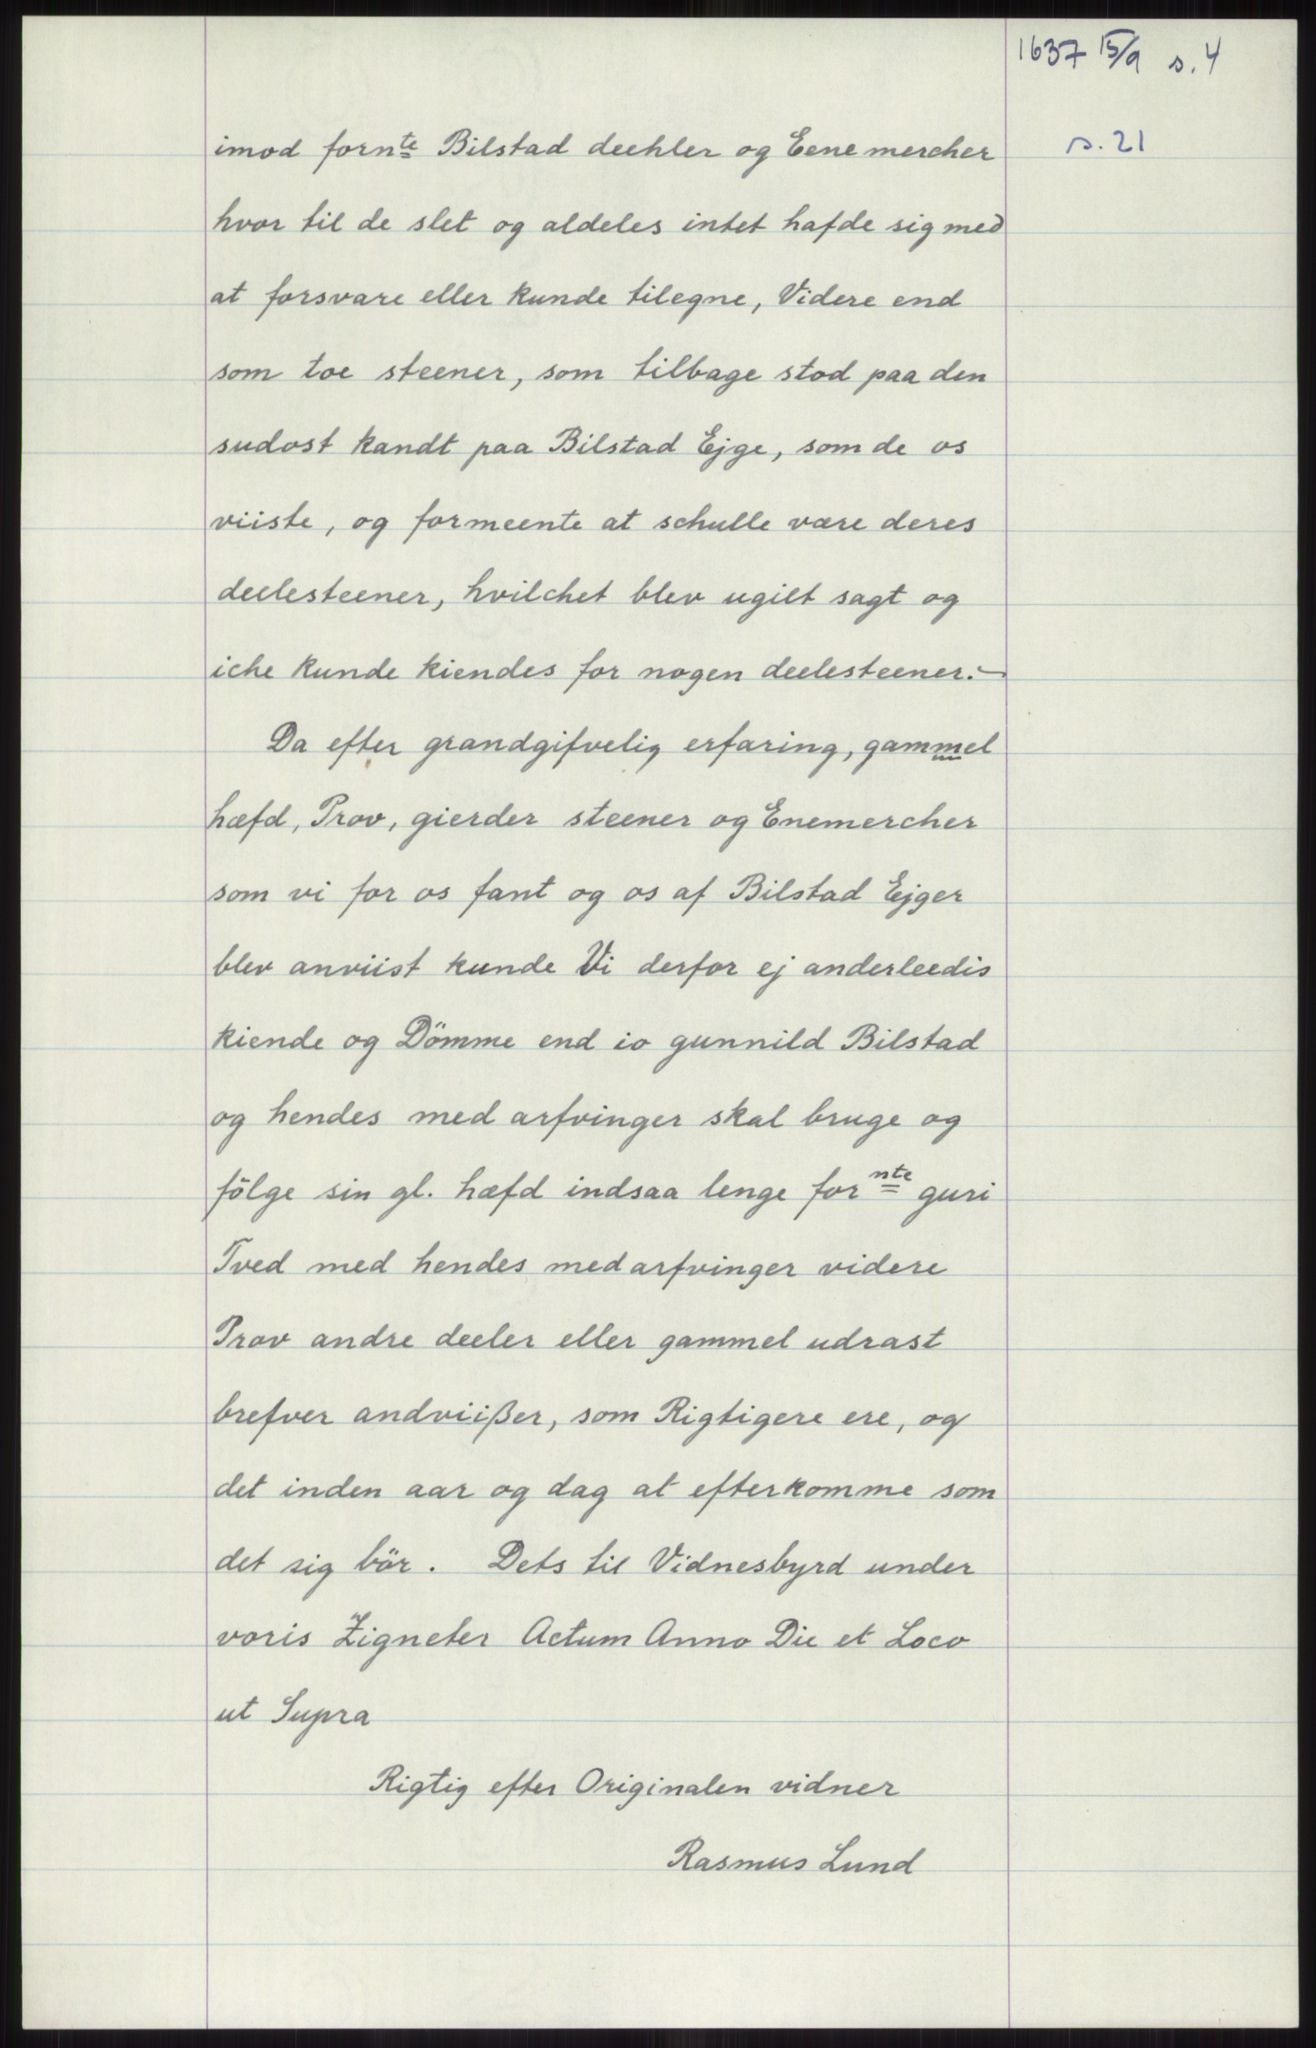 1637 15/9 s. 4
s. 21
imod fornte Bilstad deehler og Eenemercher
hvor til de slet og aldeles intet hafde sig med
at forsvare eller kunde tilegne, Videre end
som toe steener, som tilbage stod paa den
sudost kandt paa Bilstad Ejge, som de os
viiste, og formeente at schulle være deres
deelesteener, hvilchet blev ugilt sagt og
iche kunde kiendes for nogen deelesteener.-
Da efter grandgifvelig erfaring, gammel
hæfd, Prov, gierder steener og Enemercher
som vi for os fant og os af Bilstad Ejger
blev anviist kunde Vi derfor ej anderleedis
kiende og Dömme end io gunnild Bilstad
og hendes med arfvinger skal bruge og
fölge sin gl. hæfd indsaa lenge fornte guri
Tved med hendes medarfvinger videre
Prov andre deeler eller gammel udrast
brefver andviißer, som Rigtigere ere, og
det inden aar og dag at efterkomme som
det sig bör. Dets til Vidnesbyrd under
voris Zigneter Actum Anno Die et Loco
ut Supra
Rigtig efter Originalen vidner
Rasmus Lund